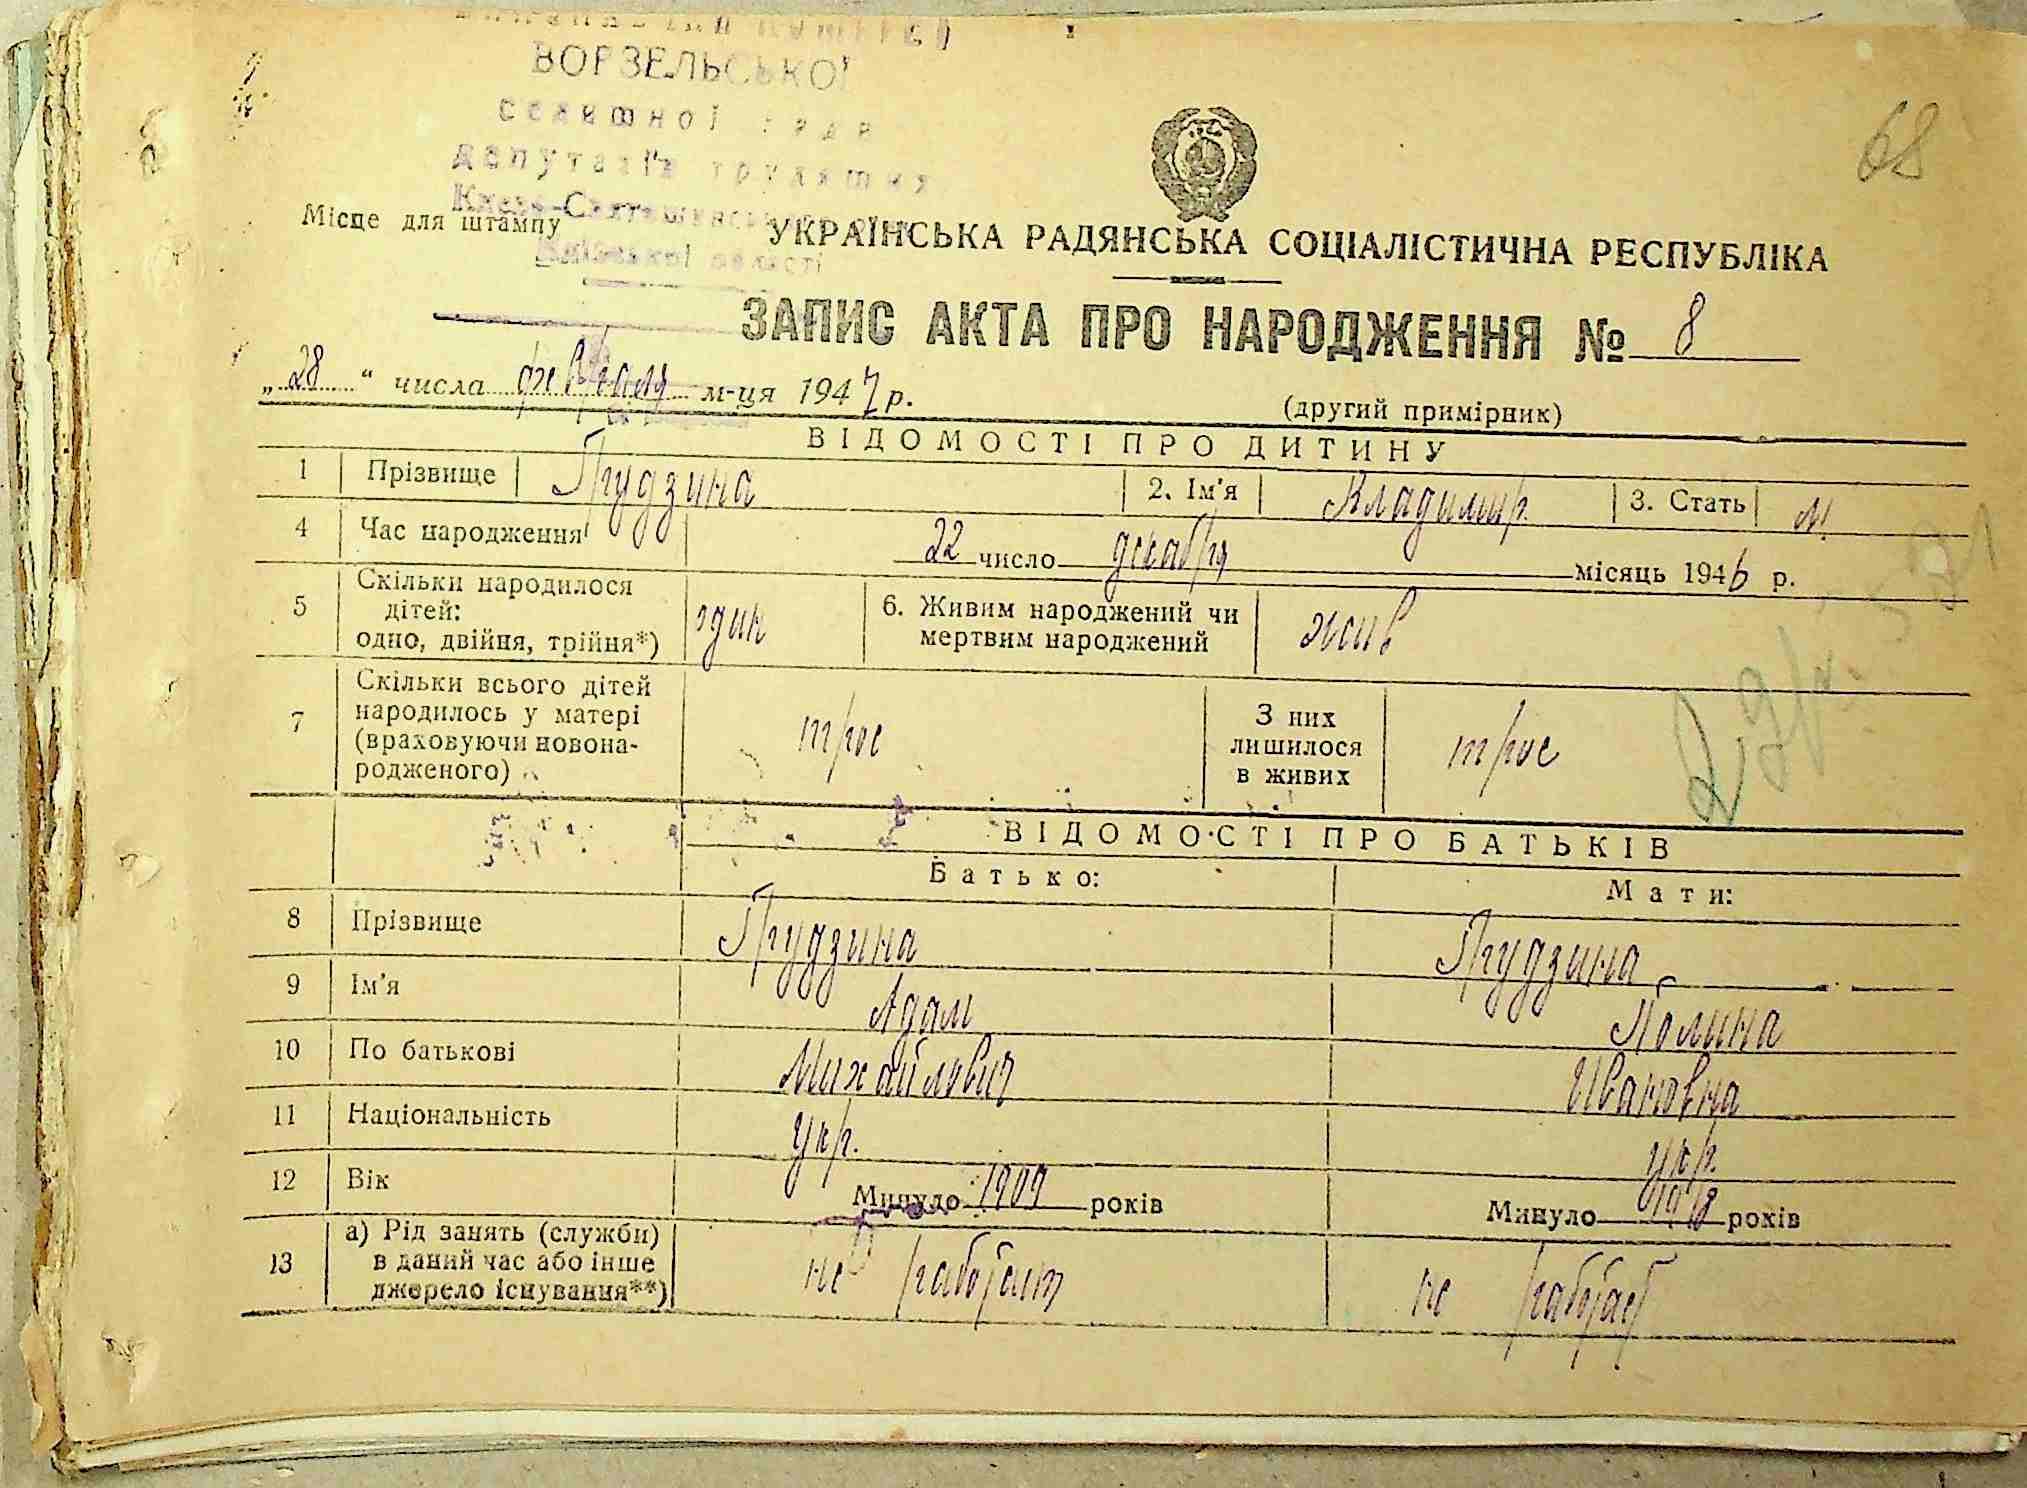 ВОРЗЕЛЬСЬКОЇ
селищної ради
депутатів трудящих
68
Місце для штампу
Київської області
УКРАЇНСЬКА РАДЯНСЬКА СОЦІАЛІСТИЧНА РЕСПУБЛІКА
ЗАПИС АКТА ПРО НАРОДЖЕННЯ № 8
„28“ числа февраля м-ця 1947 р.
(другий примірник)
ВІДОМОСТІ ПРО ДИТИНУ
1 Прізвище Грудзина 2. Ім'я Владимир 3. Стать М.
4 Час народження 22 число декабря місяць 1946 р.
5 Скільки народилося дітей: одно, двійня, трійня*) один 6. Живим народжений чи мертвим народжений жив
7 Скільки всього дітей народилось у матері (враховуючи новонародженого) трое З них лишилося в живих трое
ВІДОМОСТІ ПРО БАТЬКІВ
Батько: Мати:
8 Прізвище Грудзина Грудзина
9 Ім'я Адам Полина
10 По батькові Михайлович Ивановна
11 Національність Укр. Укр.
12 Вік Минуло 1909 років Минуло 1918 років
13 а) Рід занять (служби) в даний час або інше джерело існування**) не работает не работает